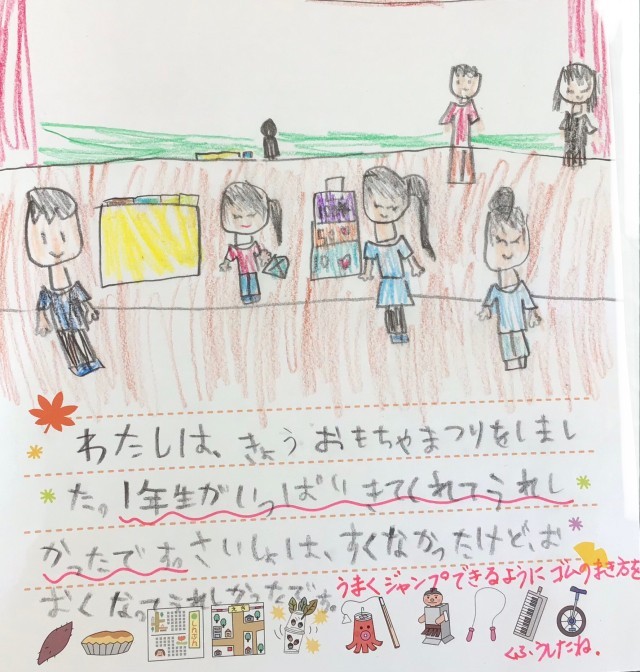 わたしは、きょうおもちゃまつりをしまし
た。1年生がいっぱいきてくれてうれし
かったです。さいしょは、すくなかったけど、お
おくなってうれしかったです。
うまくジャンプできるようにゴムのまき方を
くふうしたね。